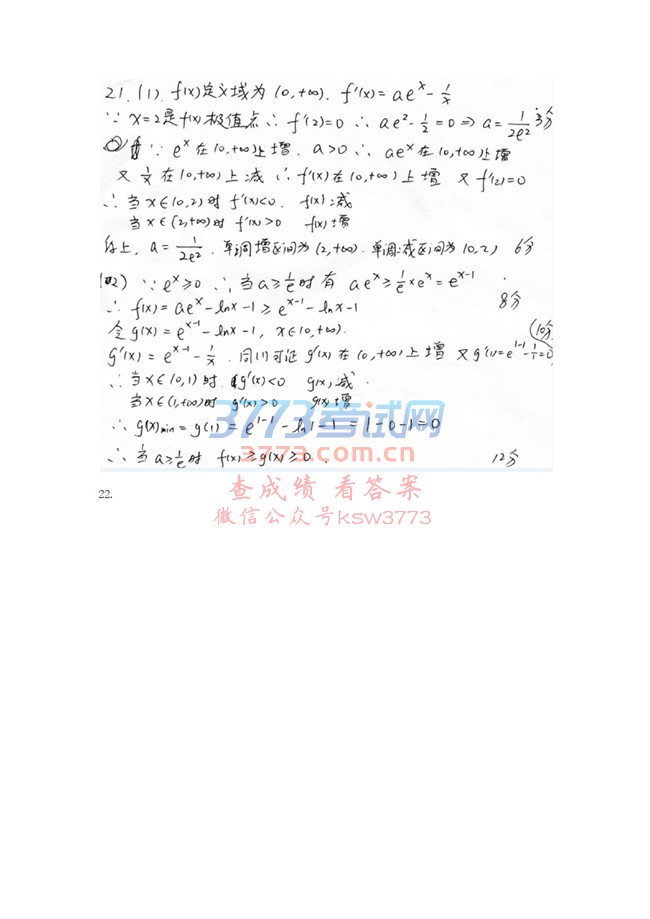 21. (1). f(x)定义域为(0,+∞). f'(x)=ae^x-1/x
∵ x=2是f(x)极值点∴ f'(2)=0 ∴ ae^2-1/2=0⇒ a=1/2e^2 3分
∵ e^x在(0,+∞)上增. a>0 ∴ ae^x在(0,+∞)上增
又 1/x在(0,+∞)上减 ∴ f'(x)在(0,+∞)上增 又f'(2)=0
∴ 当x∈(0,2)时 f'(x)<0. f(x)减
当x∈(2,+∞)时 f'(x)>0 f(x)增
综上, a=1/2e^2. 单调增区间为(2,+∞). 单调减区间为(0,2) 6分
(2) ∵ e^x≥0 ∴ 当a≥1/e时有 ae^x≥1/e×e^x=e^{x-1}
∴ f(x)=ae^x-lnx-1≥e^{x-1}-lnx-1 8分
令g(x)=e^{x-1}-lnx-1, x∈(0,+∞).
g'(x)=e^{x-1}-1/x. 同(1)可证g'(x)在(0,+∞)上增 又g'(1)=e^{1-1}-1/1=0 (10分)
∴ 当x∈(0,1)时. g'(x)<0 g(x)减.
当x∈(1,+∞)时 g'(x)>0 g(x)增
∴ g(x)min=g(1)=e^{1-1}-ln1-1=1-0-1=0
∴ 当a≥1/e时 f(x)≥g(x)≥0. 12分
3773考试网
3773.com.cn
22.
查成绩 看答案
微信公众号ksw3773